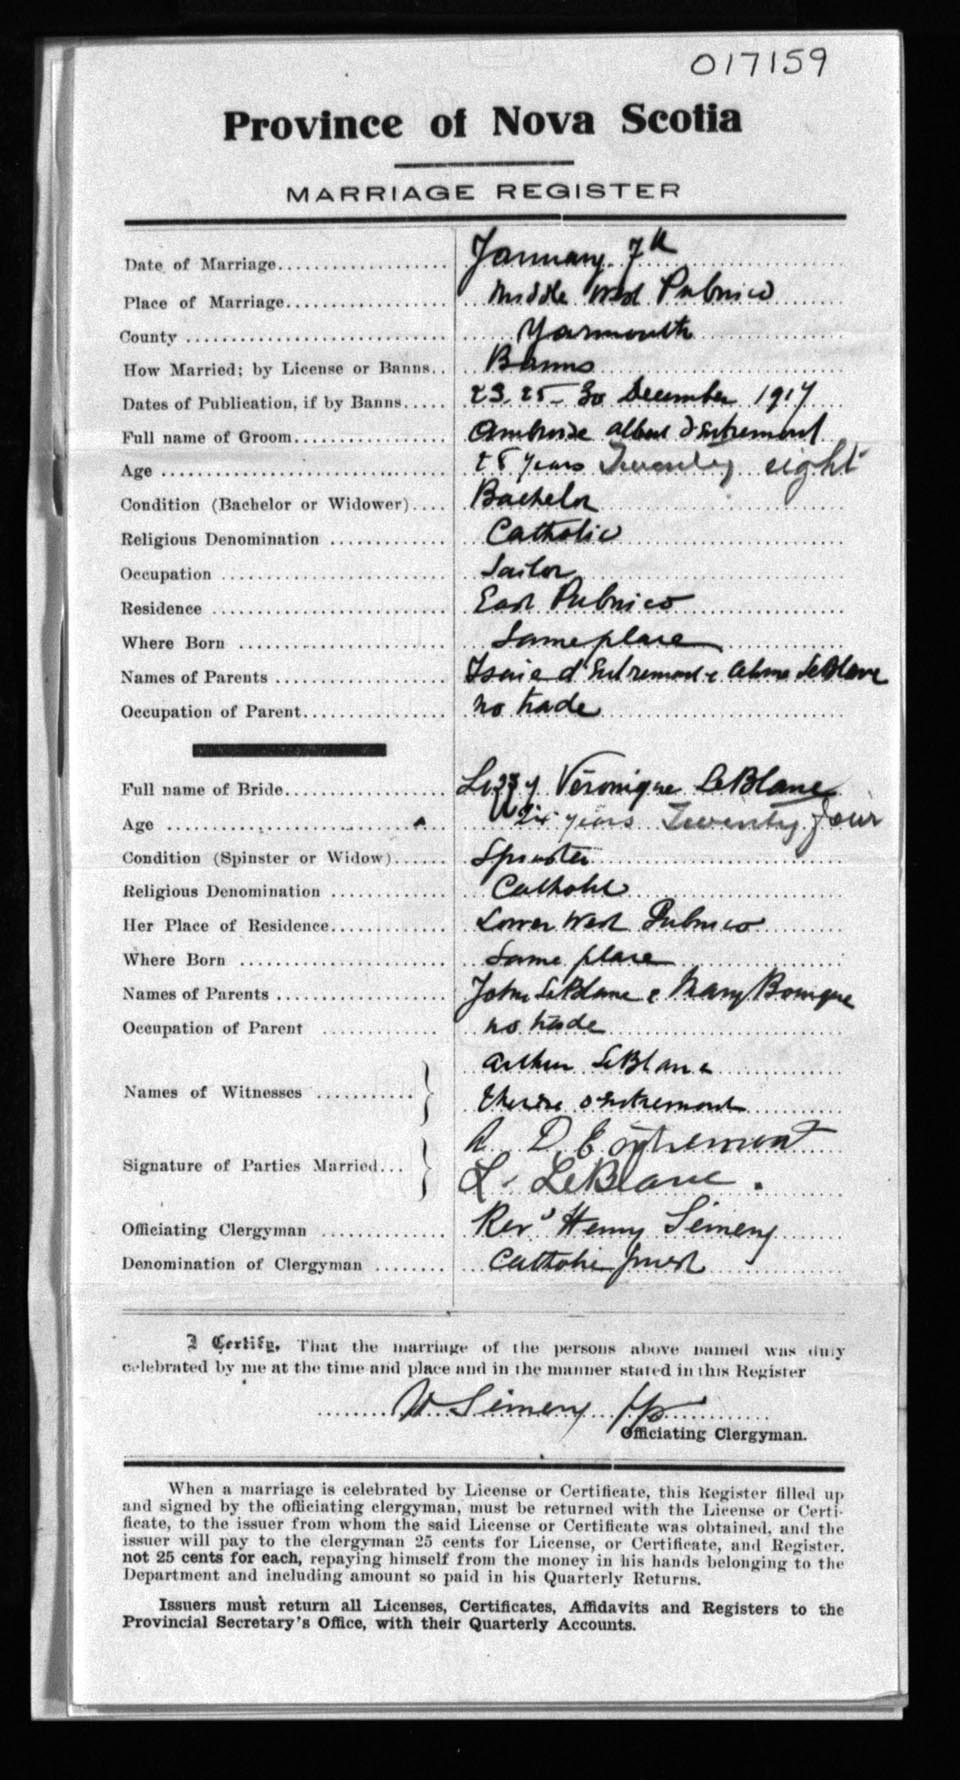 017159
Province of Nova Scotia
MARRIAGE REGISTER
Date of Marriage.................... January 7th
Place of Marriage................... Middle West Pubnico
County ............................. Yarmouth
How Married; by License or Banns.. Banns
Dates of Publication, if by Banns..... 23. 25- 30 December 1917
Full name of Groom.................. Ambroise Albert d'Entremont
Age ................................ 28 years Twenty eight
Condition (Bachelor or Widower).... Bachelor
Religious Denomination ............. Catholic
Occupation ......................... Sailor
Residence .......................... East Pubnico
Where Born ......................... Same place
Names of Parents ................... Isaie d'Entremont & LeBlanc
Occupation of Parent................ no trade
Full name of Bride.................. Véronique LeBlanc
Age ................................ years Twenty four
Condition (Spinster or Widow)...... Spinster
Religious Denomination ............. Catholic
Her Place of Residence.............. Lower West Pubnico
Where Born ......................... Same place
Names of Parents ................... John LeBlanc & Mary Bourque
Occupation of Parent ............... no trade
Names of Witnesses ........... } Arthur LeBlanc
Therese d'Entremont
Signature of Parties Married... } A. D. Entremont
L. LeBlanc.
Officiating Clergyman .............. Revd Henry
Denomination of Clergyman ........ Catholic priest
I Certify, That the marriage of the persons above named was duly
celebrated by me at the time and place and in the manner stated in this Register
Officiating Clergyman.
When a marriage is celebrated by License or Certificate, this Register filled up
and signed by the officiating clergyman, must be returned with the License or Certi-
ficate, to the issuer from whom the said License or Certificate was obtained, and the
issuer will pay to the clergyman 25 cents for License, or Certificate, and Register,
not 25 cents for each, repaying himself from the money in his hands belonging to the
Department and including amount so paid in his Quarterly Returns.
Issuers must return all Licenses, Certificates, Affidavits and Registers to the
Provincial Secretary's Office, with their Quarterly Accounts.